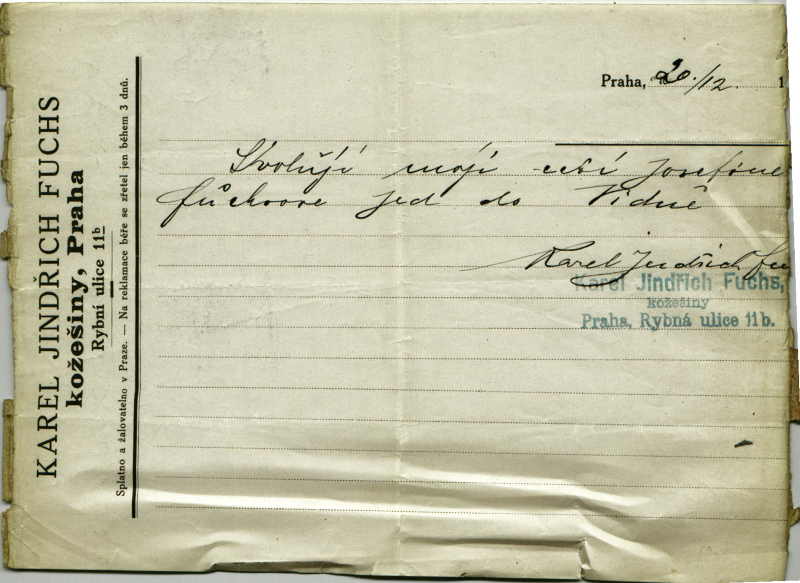 KAREL JINDŘICH FUCHS
kožešiny, Praha
Rybní ulice 11b
Splatno a žalovatelno v Praze. — Na reklamace béře se zřetel jen během 3 dnů.
Praha, 20./12. 1
Svoluji moji ceti Josefine
Fuchsove jed do Vidně
Karel Jindřich Fu
Karel Jindřich Fuchs,
kožešiny
Praha, Rybná ulice 11b.